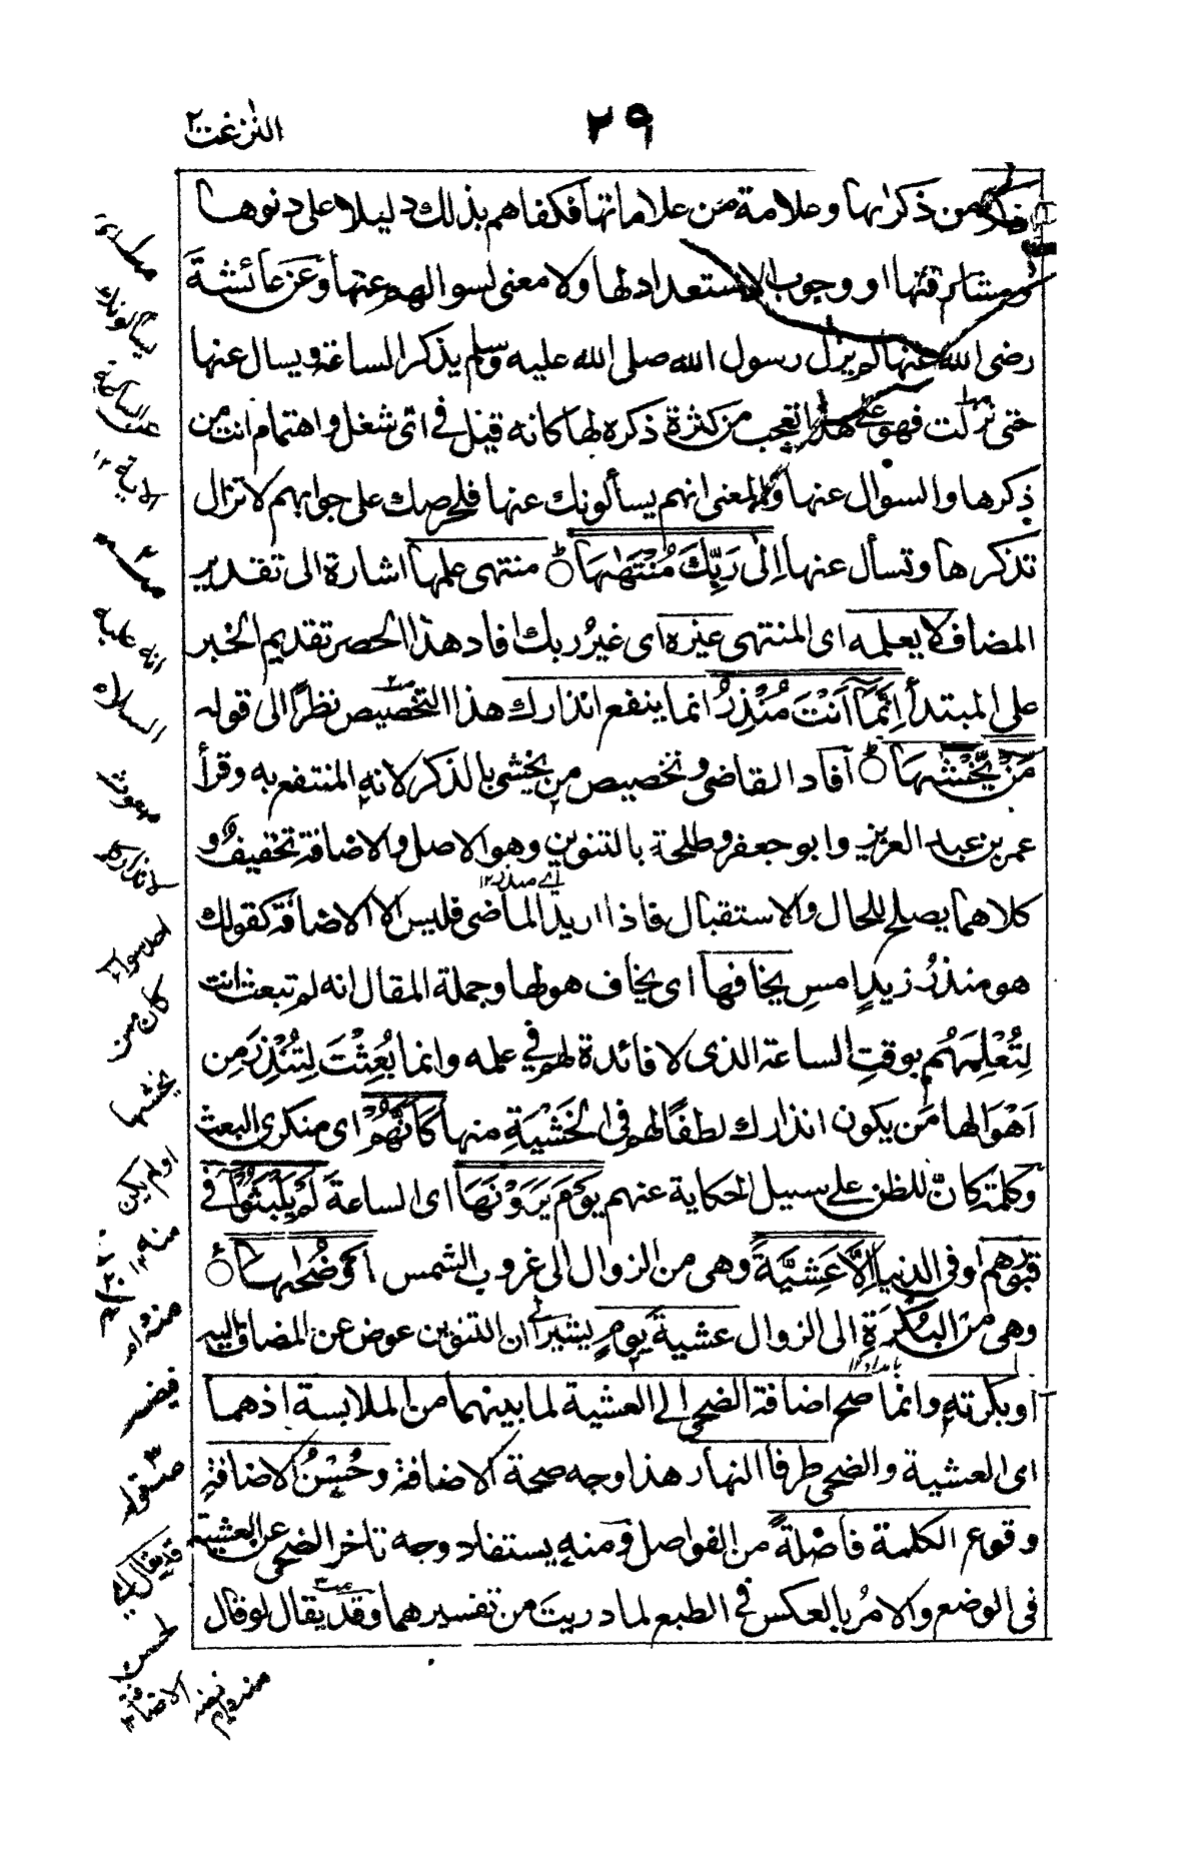 ٢٩
النزعت
من ذكراها وعلامة من علاماتها فكفاهم بذلك دليلا على دنوها
ومشارفتها ووجوب الاستعداد لها ولا معنى لسوالهم عنها وعن عائشة
رضى الله عنها لم يزل رسول الله صلى الله عليه وسلم يذكر الساعة ويسال عنها
حتى نزلت فهو على هذا تعجب من كثرة ذكره لها كانه قيل فى اى شغل واهتمام انت من
ذكرها والسوال عنها والمعنى انهم يسألونك عنها فلحرصك على جوابهم لا تزال
تذكرها وتسأل عنها اِلٰى رَبِّكَ مُنْتَهٰىهَا منتهى علمها اشارة الى تقدير
المضاف لا يعلمه اى المنتهى غيره اى غيرُ ربك افاد هذا الحصر تقديم الخبر
على المبتدأ اِنَّمَآ اَنْتَ مُنْذِرُ انما ينفع انذارك هذا التخصيص نظرًا الى قوله
مَنْ يَّخْشٰىهَا افاد القاضى وتخصيص من يخشى بالذكر لانه المنتفع به وقرأ
عمر بن عبد العزيز وابو جعفر وطلحة بالتنوين وهو الاصل والاضافة تخفيف و
اى منذر ١٢
كلاهما يصلح للحال والاستقبال فاذا اريد الماضى فليس الا الاضافة كقولك
هو منذرُ زيدٍ امسِ يخافها اى يخاف هولها وجملة المقال انه لم تبعث انت
لِتُعْلِمَهُم بوقتِ الساعة الذى لا فائدة لهم فى علمه وانما بُعِثْتَ لِتُنْذِرَ مِن
اَهْوَالها مَن يكون انذارك لطفًا لهم فى الخَشْيَةِ منها كَاَنَّهُمْ اى منكرى البعث
وكلمة كانّ للظن على سبيل الحكاية عنهم يَوْمَ يَرَوْنَهَا اى الساعة لَمْ يَلْبَثُوْٓا فى
قبورهم او فى الدنيا اِلَّا عَشِيَّةً وهى من الزوال الى غروب الشمس اَوْ ضُحٰىهَا
وهى من البُكرَةِ الى الزوال عشية يومٍ يشير الى ان التنوين عوض عن المضاف اليه
بامداد ١٢
او بكرته وانما صح اضافة الضحى الى العشية لما بينهما من الملابسة اذ هما
اى العشية والضحى طرفا النهار هذا وجه صحة الاضافة وحُسْنُ الاضافة
وقوع الكلمة فاصْلةً من الفواصل ومنه يستفاد وجه تاخر الضحى عن العشية
فى الوضع والامرُ بالعكس فى الطبع لما دريت من تفسيرهما وقد يقال لو قال
يسألونك
عن الساعة
الاية ١٢
انه عليه
السلام
مبعوث
لانذار كل
احد سواء
كان من
يخشيها
او لم يكن
منه ١٢
قد يقال الخ
لحسن
الاضافة